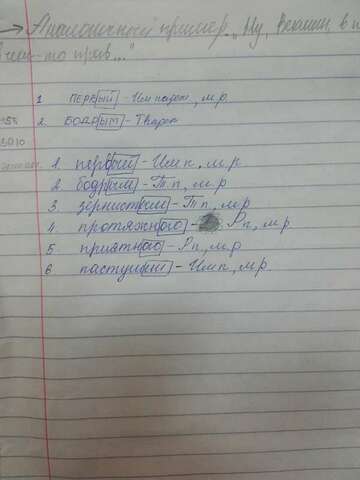 → Аналогичный пример „Ну, в п
чем-то прав..."
1 ПЕРВЫЙ - Им падеж, м.р.
2. БОДРЫМ - Тв падеж
1. первый - Им п, м.р
2. бодрым - Т п, м.р
3. зернистым - Т п, м.р
4. протяжного - Р п, м.р
5. приятного - Р п, м.р
6 пастуший - Им п, м.р.